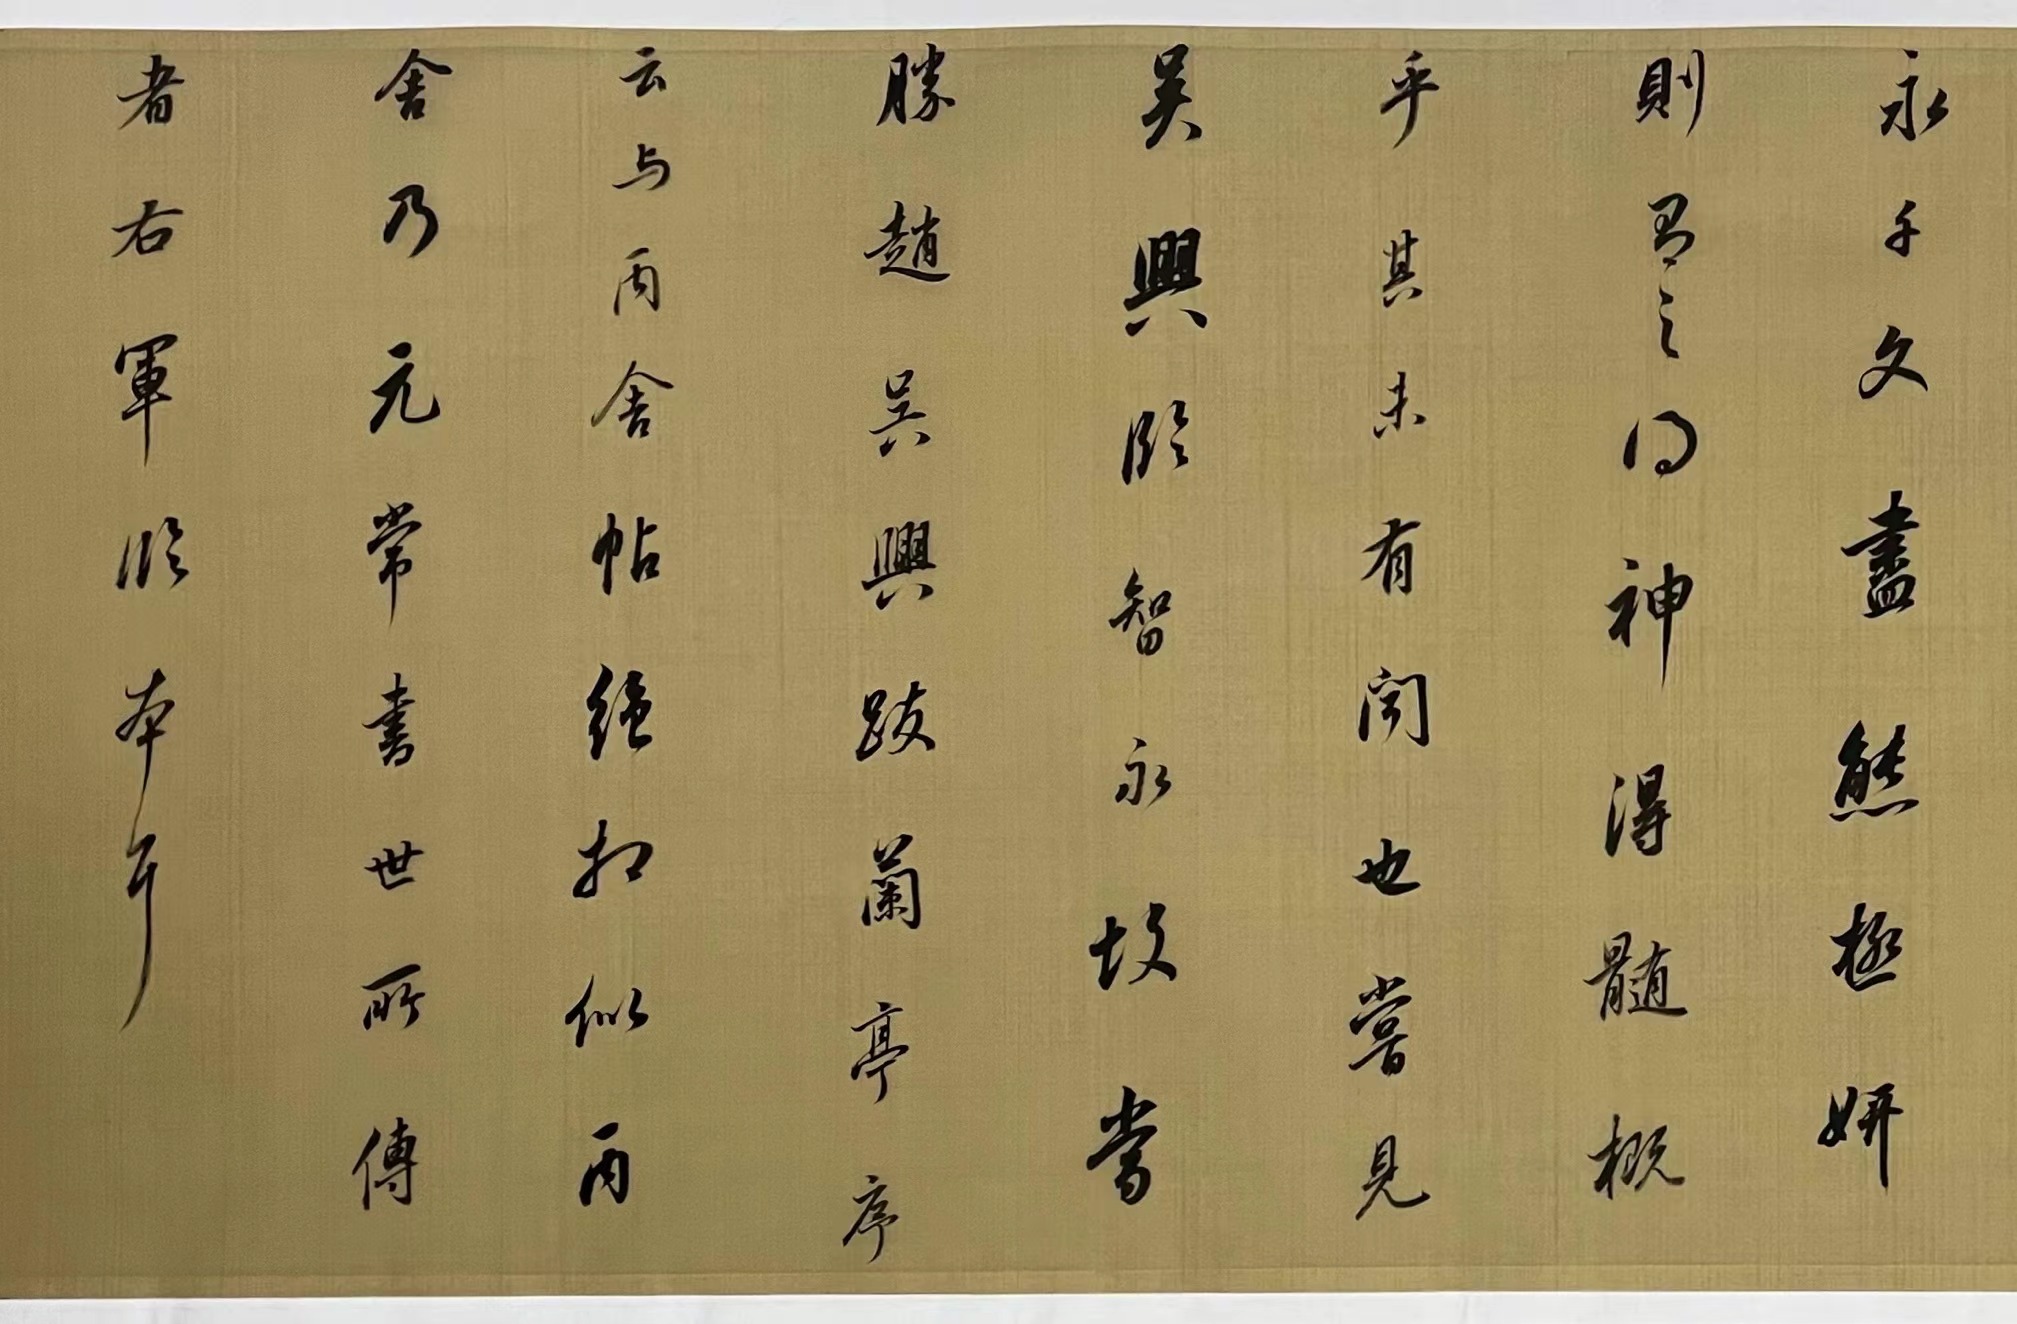 永千文盡態極妍
則有之得神得髓概
乎其未有聞也嘗見
吴興臨智永故當
勝趙吴興跋蘭亭序
云与丙舍帖絕相似丙
舍乃元常書世所傳
者右軍臨本耳